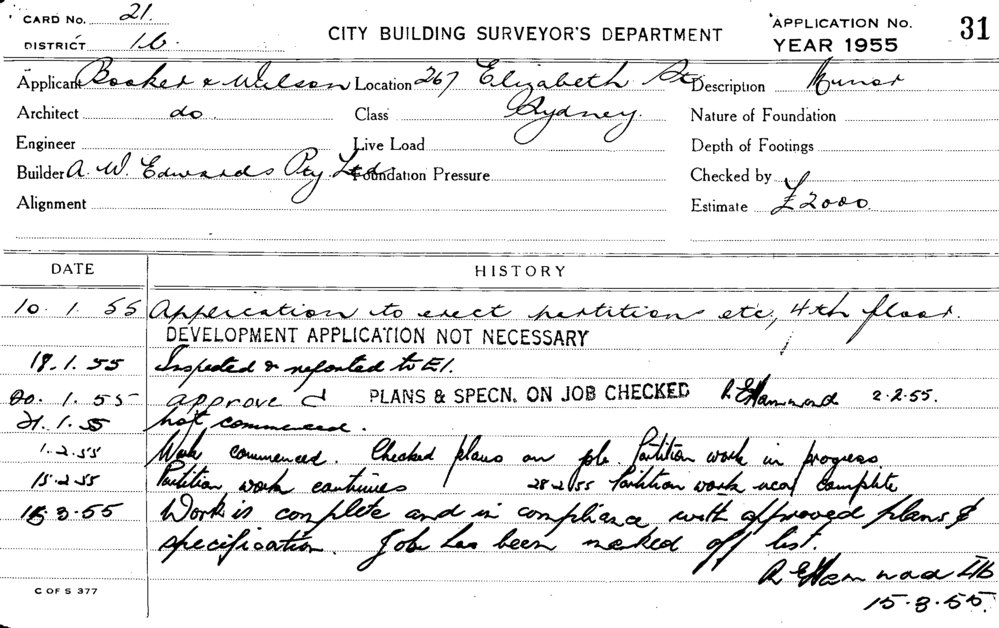 CARD No. 21.
DISTRICT 1b.
CITY BUILDING SURVEYOR'S DEPARTMENT
APPLICATION No. 31
YEAR 1955
Applicant Booker & Wilson Location 267 Elizabeth St Description Minor
Architect do Class Sydney. Nature of Foundation
Engineer Live Load Depth of Footings
Builder A. W. Edwards Pty. Ltd. Foundation Pressure Checked by
Alignment Estimate £2000.
DATE HISTORY
10. 1. 55 Application to erect partitions etc, 4th floor.
DEVELOPMENT APPLICATION NOT NECESSARY
18.1.55 Inspected & reported to E1.
20. 1. 55 approved PLANS & SPECN. ON JOB CHECKED R. E. Hammond 2-2-55.
21.1.55 not commenced.
1.2.55 Work commenced. Checked plans on job. Partition work in progress
15-2-55 Partition work continues 28-2-55 Partition work near complete
15-3-55 Work is complete and in compliance with approved plans &
specification. Job has been marked off list.
R. E. Hammond IIb
15-3-55.
C OF S 377